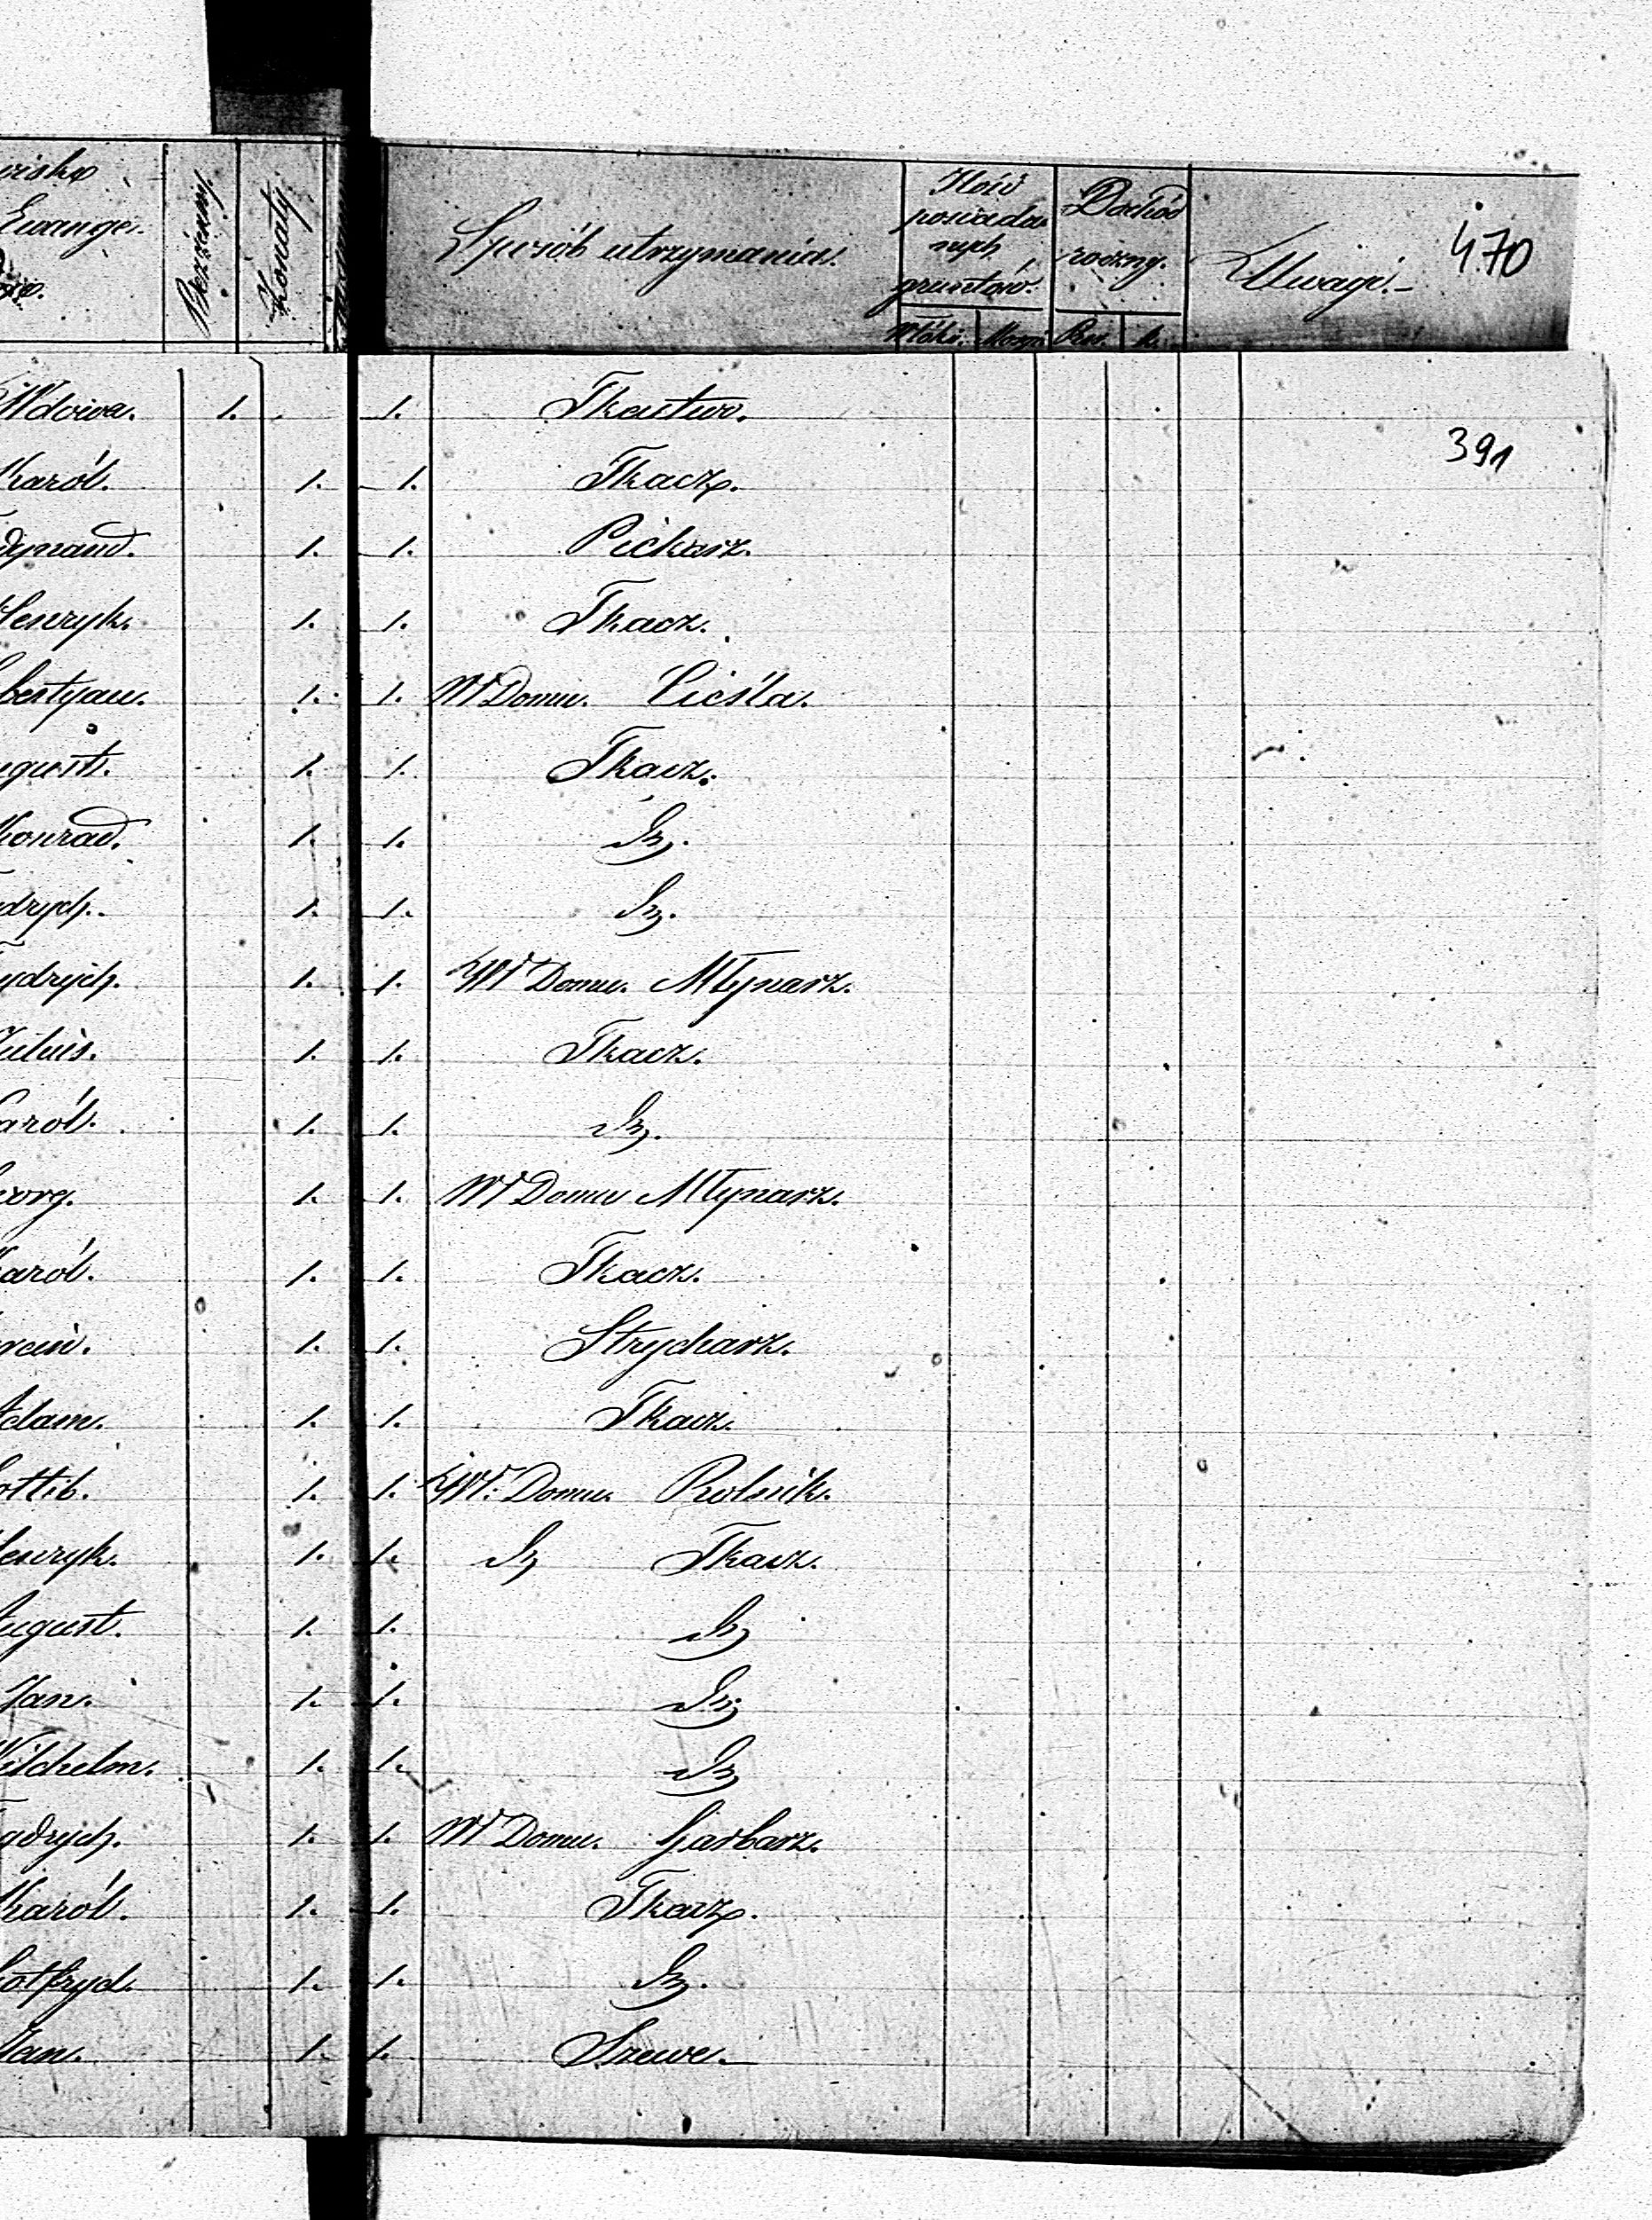 Ewange.
Bezżenny.
Żonaty.
Sposób utrzymania.
Ilość
posiada-
nych
gruntów.
Włók. Morg.
Dochód
roczny.
Rsr. k.
Uwagi.-
470
391
Wdowa. 1. 1. Tkactwo.
Karól. 1. 1. Tkacz.
dynand. 1. 1. Piekarz.
Henryk. 1. 1. Tkacz.
bestyan. 1. 1. Wł Domu. Cieśla.
ugust. 1. 1. Tkacz.
Konrad. 1. 1. Dt.
drych. 1. 1. Dt.
ydrych. 1. 1. Wł Domu. Młynarz.
Julius. 1. 1. Tkacz.
aról. 1. 1. Dt.
eorg. 1. 1. Wł Domu Młynarz.
Karól. 1. 1. Tkacz.
rcin. 1. 1. Strycharz.
Adam. 1. 1. Tkacz.
ottlib. 1. 1. Wł. Domu. Rolnik.
Henryk. 1. 1. Dt Tkacz.
August. 1. 1. Dt
Jan. 1. 1. Dt
Wilchelm. 1. 1. Dt
ydrych. 1. 1. Wł Domu. Garbarz.
Karól. 1. 1. Tkacz.
Gotfryd. 1. 1. Dt.
Jan. 1. 1. Szewc.-